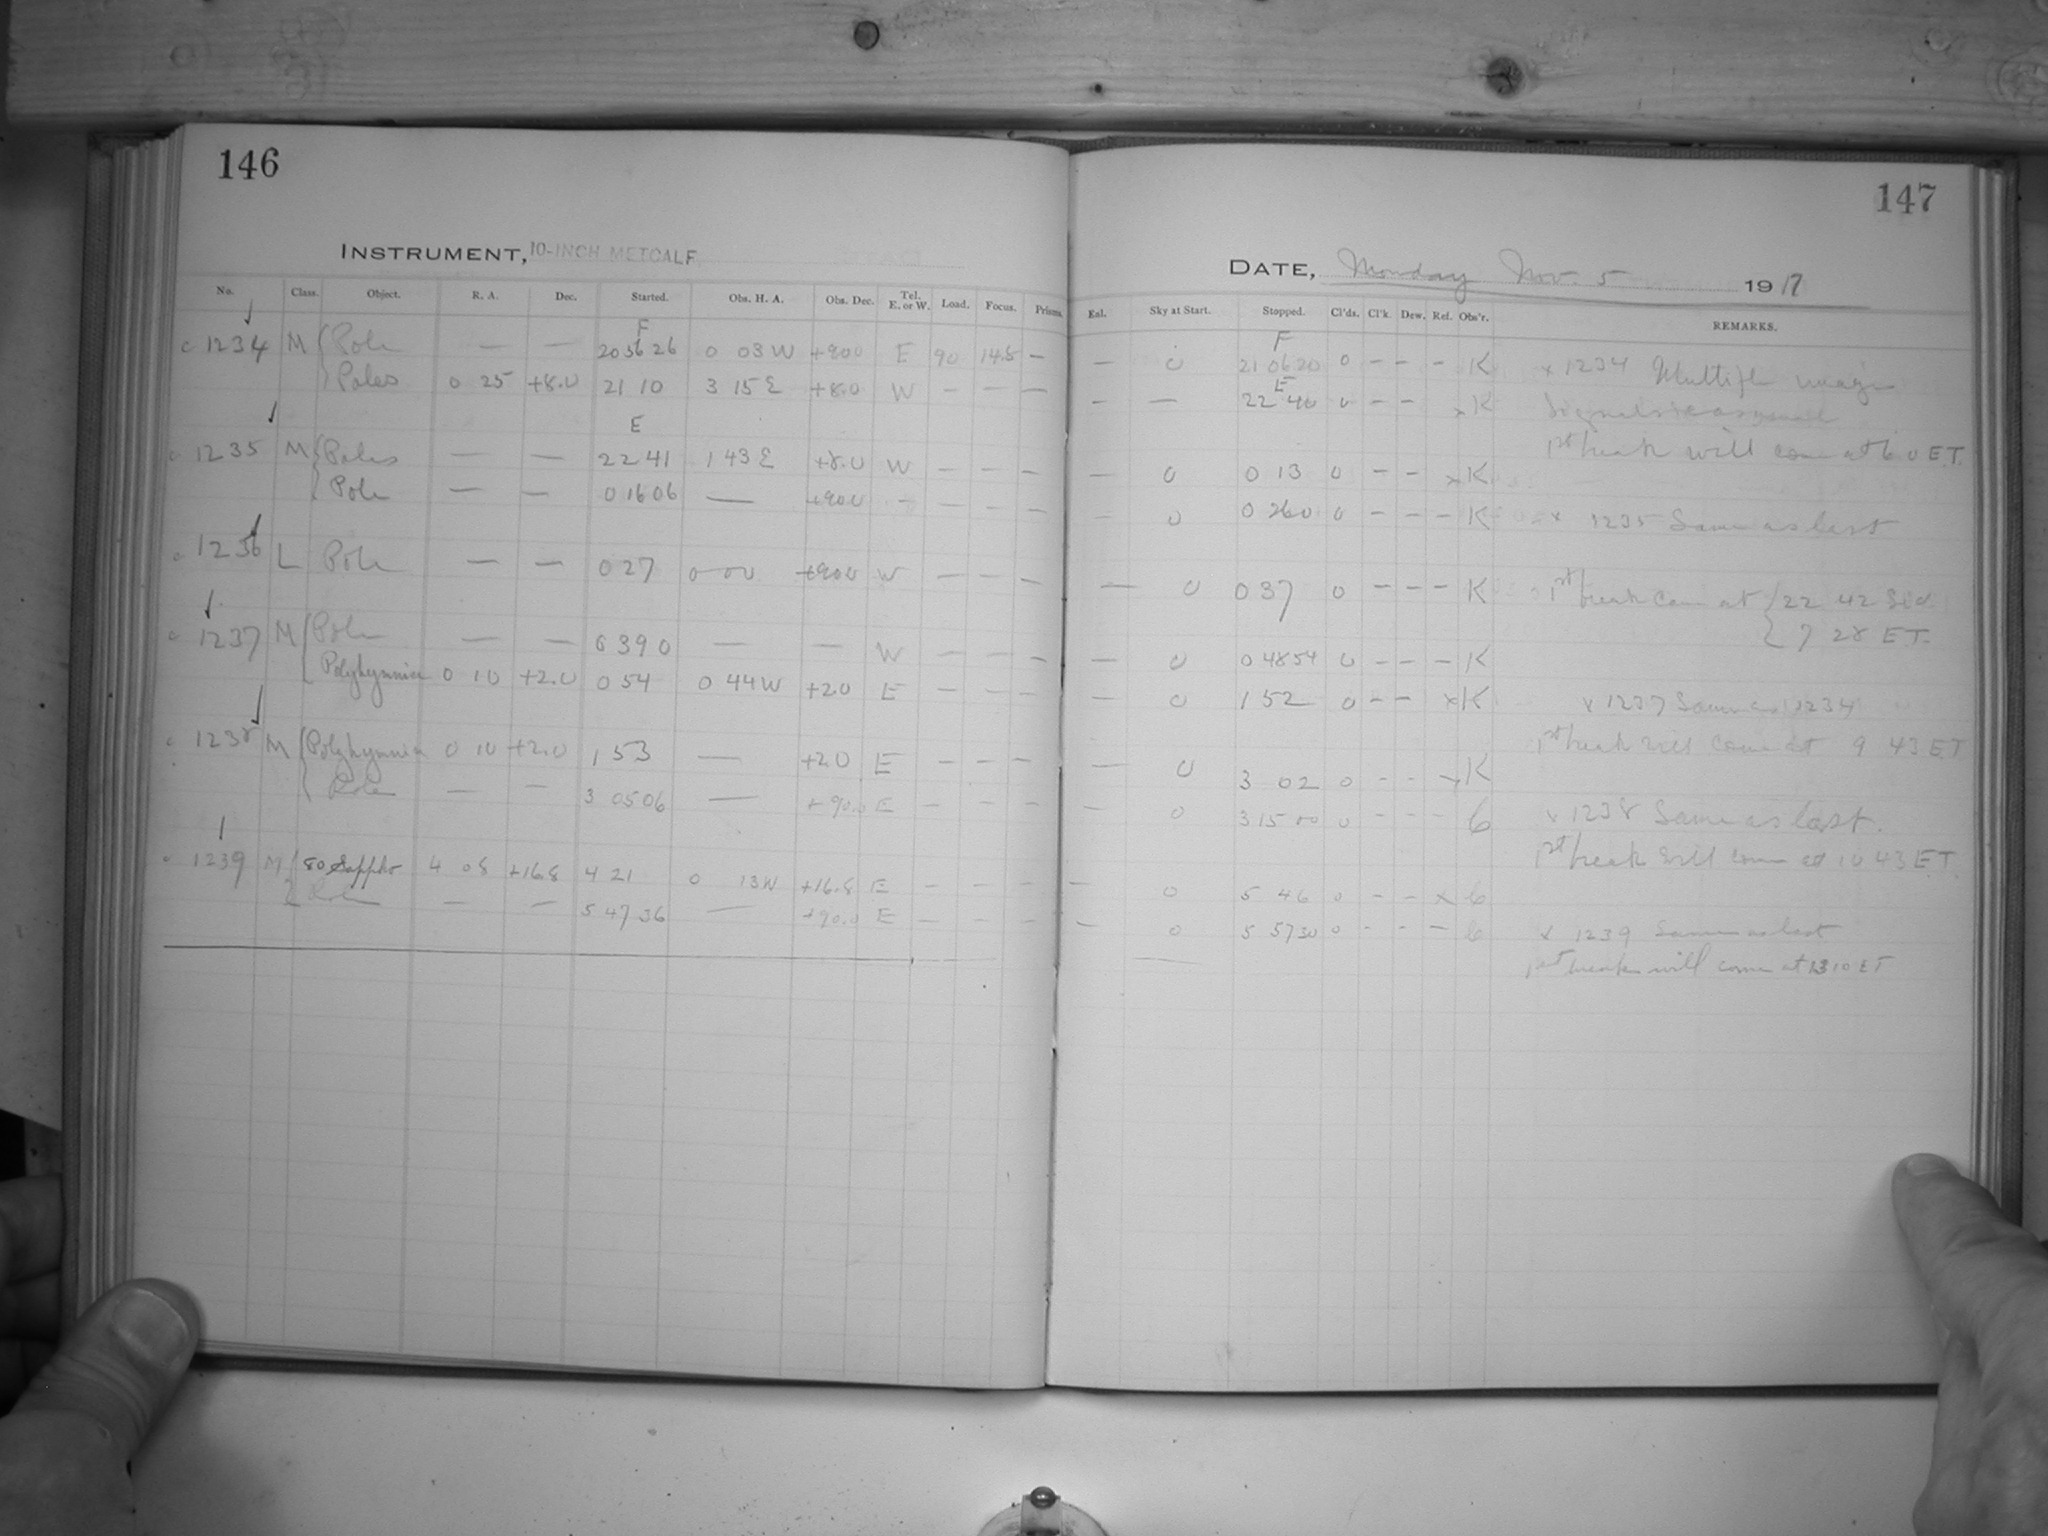 146
147
INSTRUMENT, 10-INCH METCALF
DATE, Monday Nov. 5 1917
No. Class. Object. R. A. Dec. Started. Obs. H. A. Obs. Dec. Tel. E. or W. Load. Focus. Prisms.
Exl. Sky at Start. Stopped. Cl'ds. Cl'k. Dew. Ref. Obs'r. REMARKS.
F
F
c 1234 M Pole — — 20 56 26 0 03 W +90.0 E 90 14.5 —
— 0 21 06 20 0 – – – K x 1234 Multiple images
Pales 0 25 +8.0 21 10 3 15 E +8.0 W — — —
E
— — 22 40 0 – – x K
E
1st break will come at 6 0 E.T.
c 1235 M Pales — — 22 41 1 43 E +8.0 W – – –
— 0 0 13 0 – – x K
Pole — — 0 16 06 — +90.0 – – – –
— 0 0 26 0 0 – – – K x 1235 Same as last
c 1236 L Pole — — 0 27 0 00 +90.0 W – – –
— 0 0 37 0 – – – K 1st break came at 22 42 Sid
7 28 E.T.
c 1237 M Pole — — 0 39 0 — — W – – –
— 0 0 48 54 0 – – – K
Polyhymnia 0 10 +2.0 0 54 0 44 W +2.0 E – – –
— 0 1 52 0 – – x K x 1237 Same as 1234
1st break will come at 9 43 ET
c 1238 M Polyhymnia 0 10 +2.0 1 53 — +2.0 E – – –
— 0 3 02 0 – – x K
Pole — — 3 05 06 — +90.0 E – – –
— 0 3 15 00 0 – – – C x 1238 Same as last.
1st break will come at 10 43 E.T.
c 1239 M 80 Sappho 4 08 +16.8 4 21 0 13 W +16.8 E – – –
— 0 5 46 0 – – x C
Pole — — 5 47 36 — +90.0 E – – –
— 0 5 57 30 0 – – – C x 1239 Same as last
1st break will come at 13 10 ET